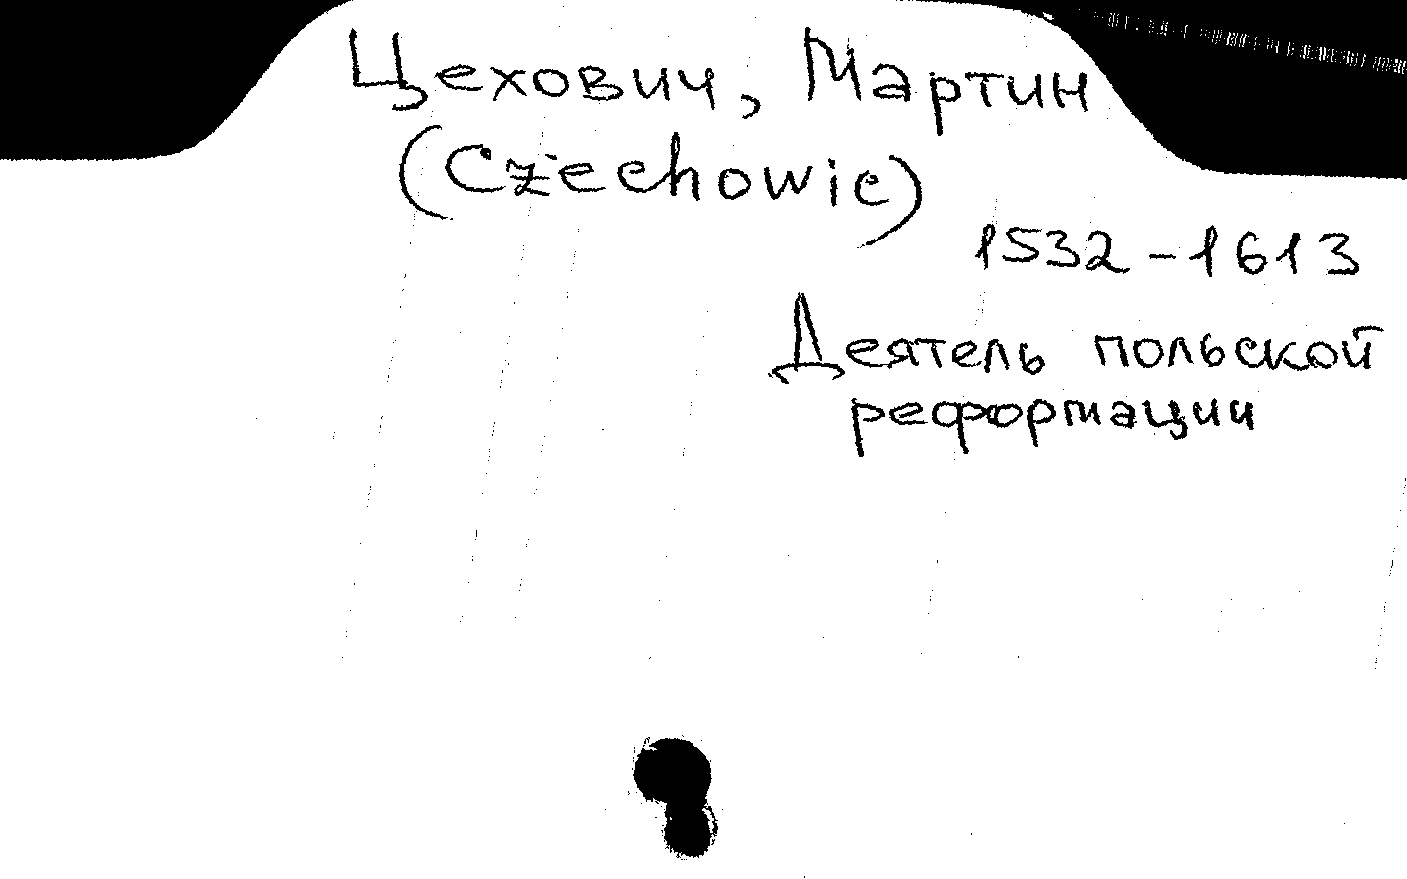 Цехович, Мартин
(Czechowic)
1532-1613
Деятель польской
реформации